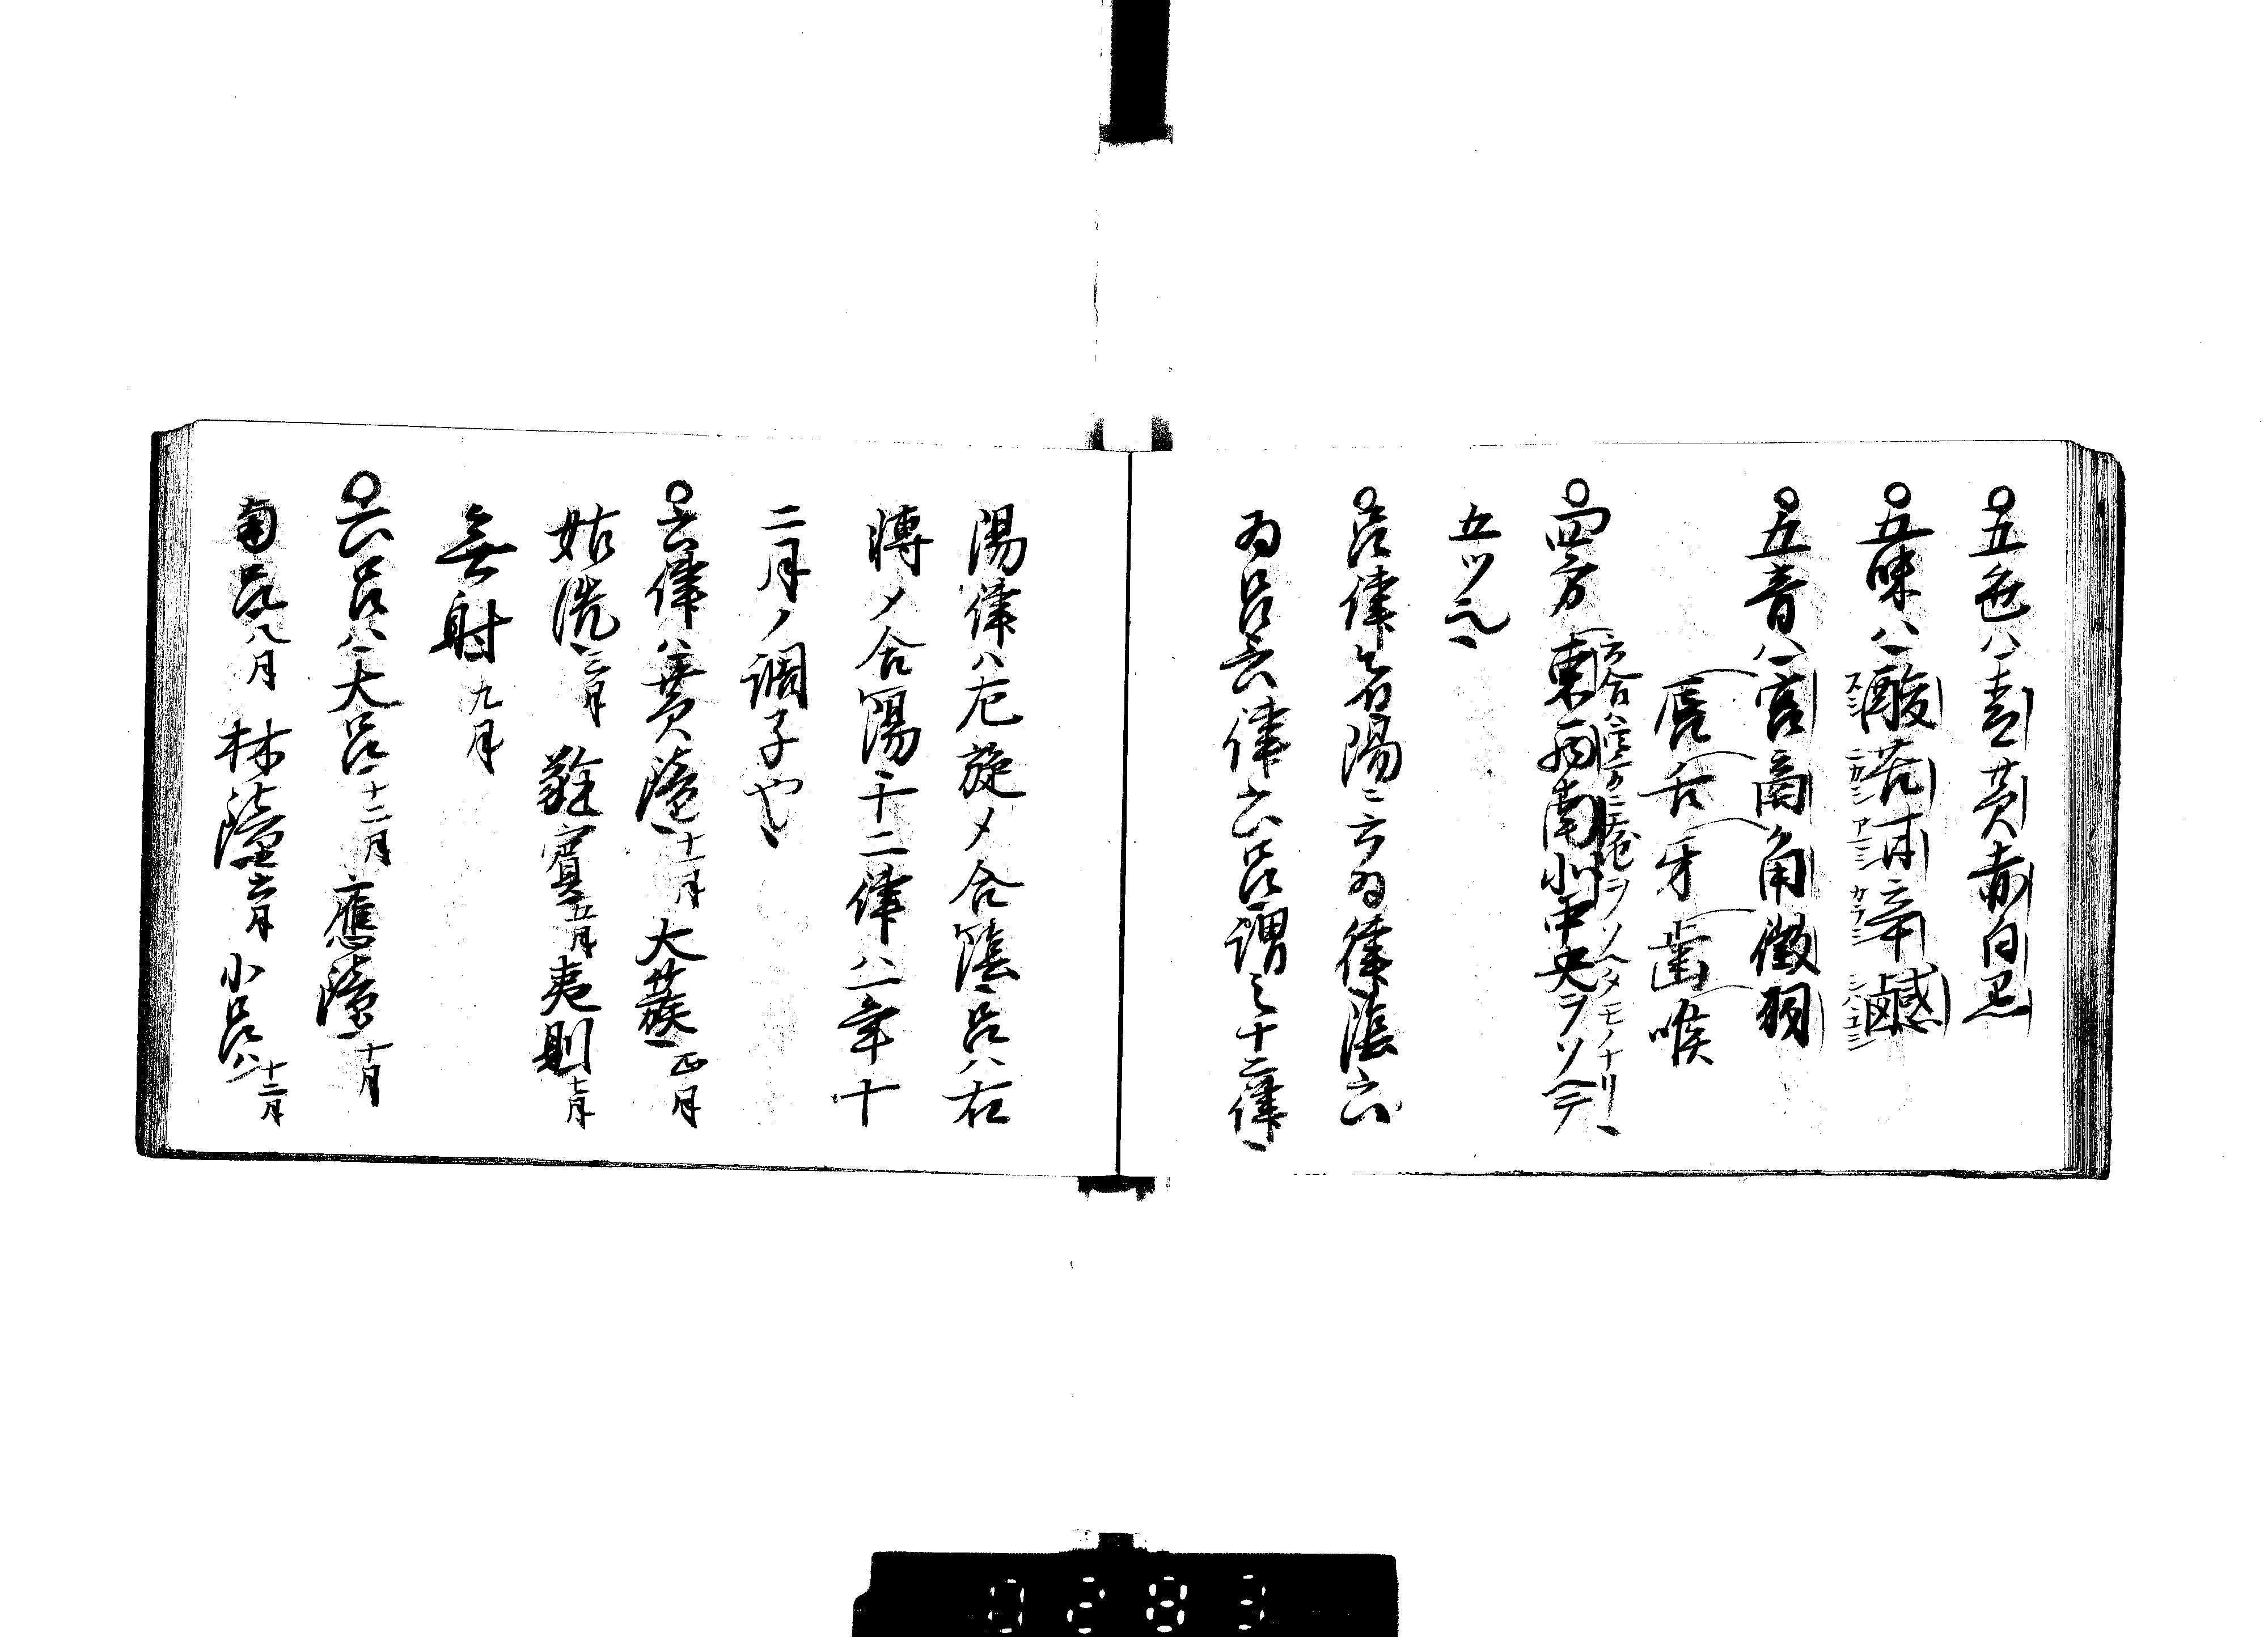 ○五色ハ青黄赤白黒
○五味ハ酸苦甘辛鹹
スシ ニカシ アマシ カラシ シハユシ
○五音ハ宮商角徴羽
唇舌牙歯喉
○四方 東西南北中央ヲソヘテ
六合ハ四方ニ上下ヲソヘタモノナリ
五ツ也
○呂律者陽ニ六為律陰六
為呂六律六呂謂之十二律
陽律ハ左旋メ合陰呂ハ右
轉メ合陽十二律ハ一年十
二月ノ調子也
○六律ハ黄鐘十一月 大蔟正月
姑洗三月 蕤賓五月 夷則七月
無射 九月
○六呂ハ大呂十二月 應鐘十月
南呂八月 林鐘六月 小呂
0283